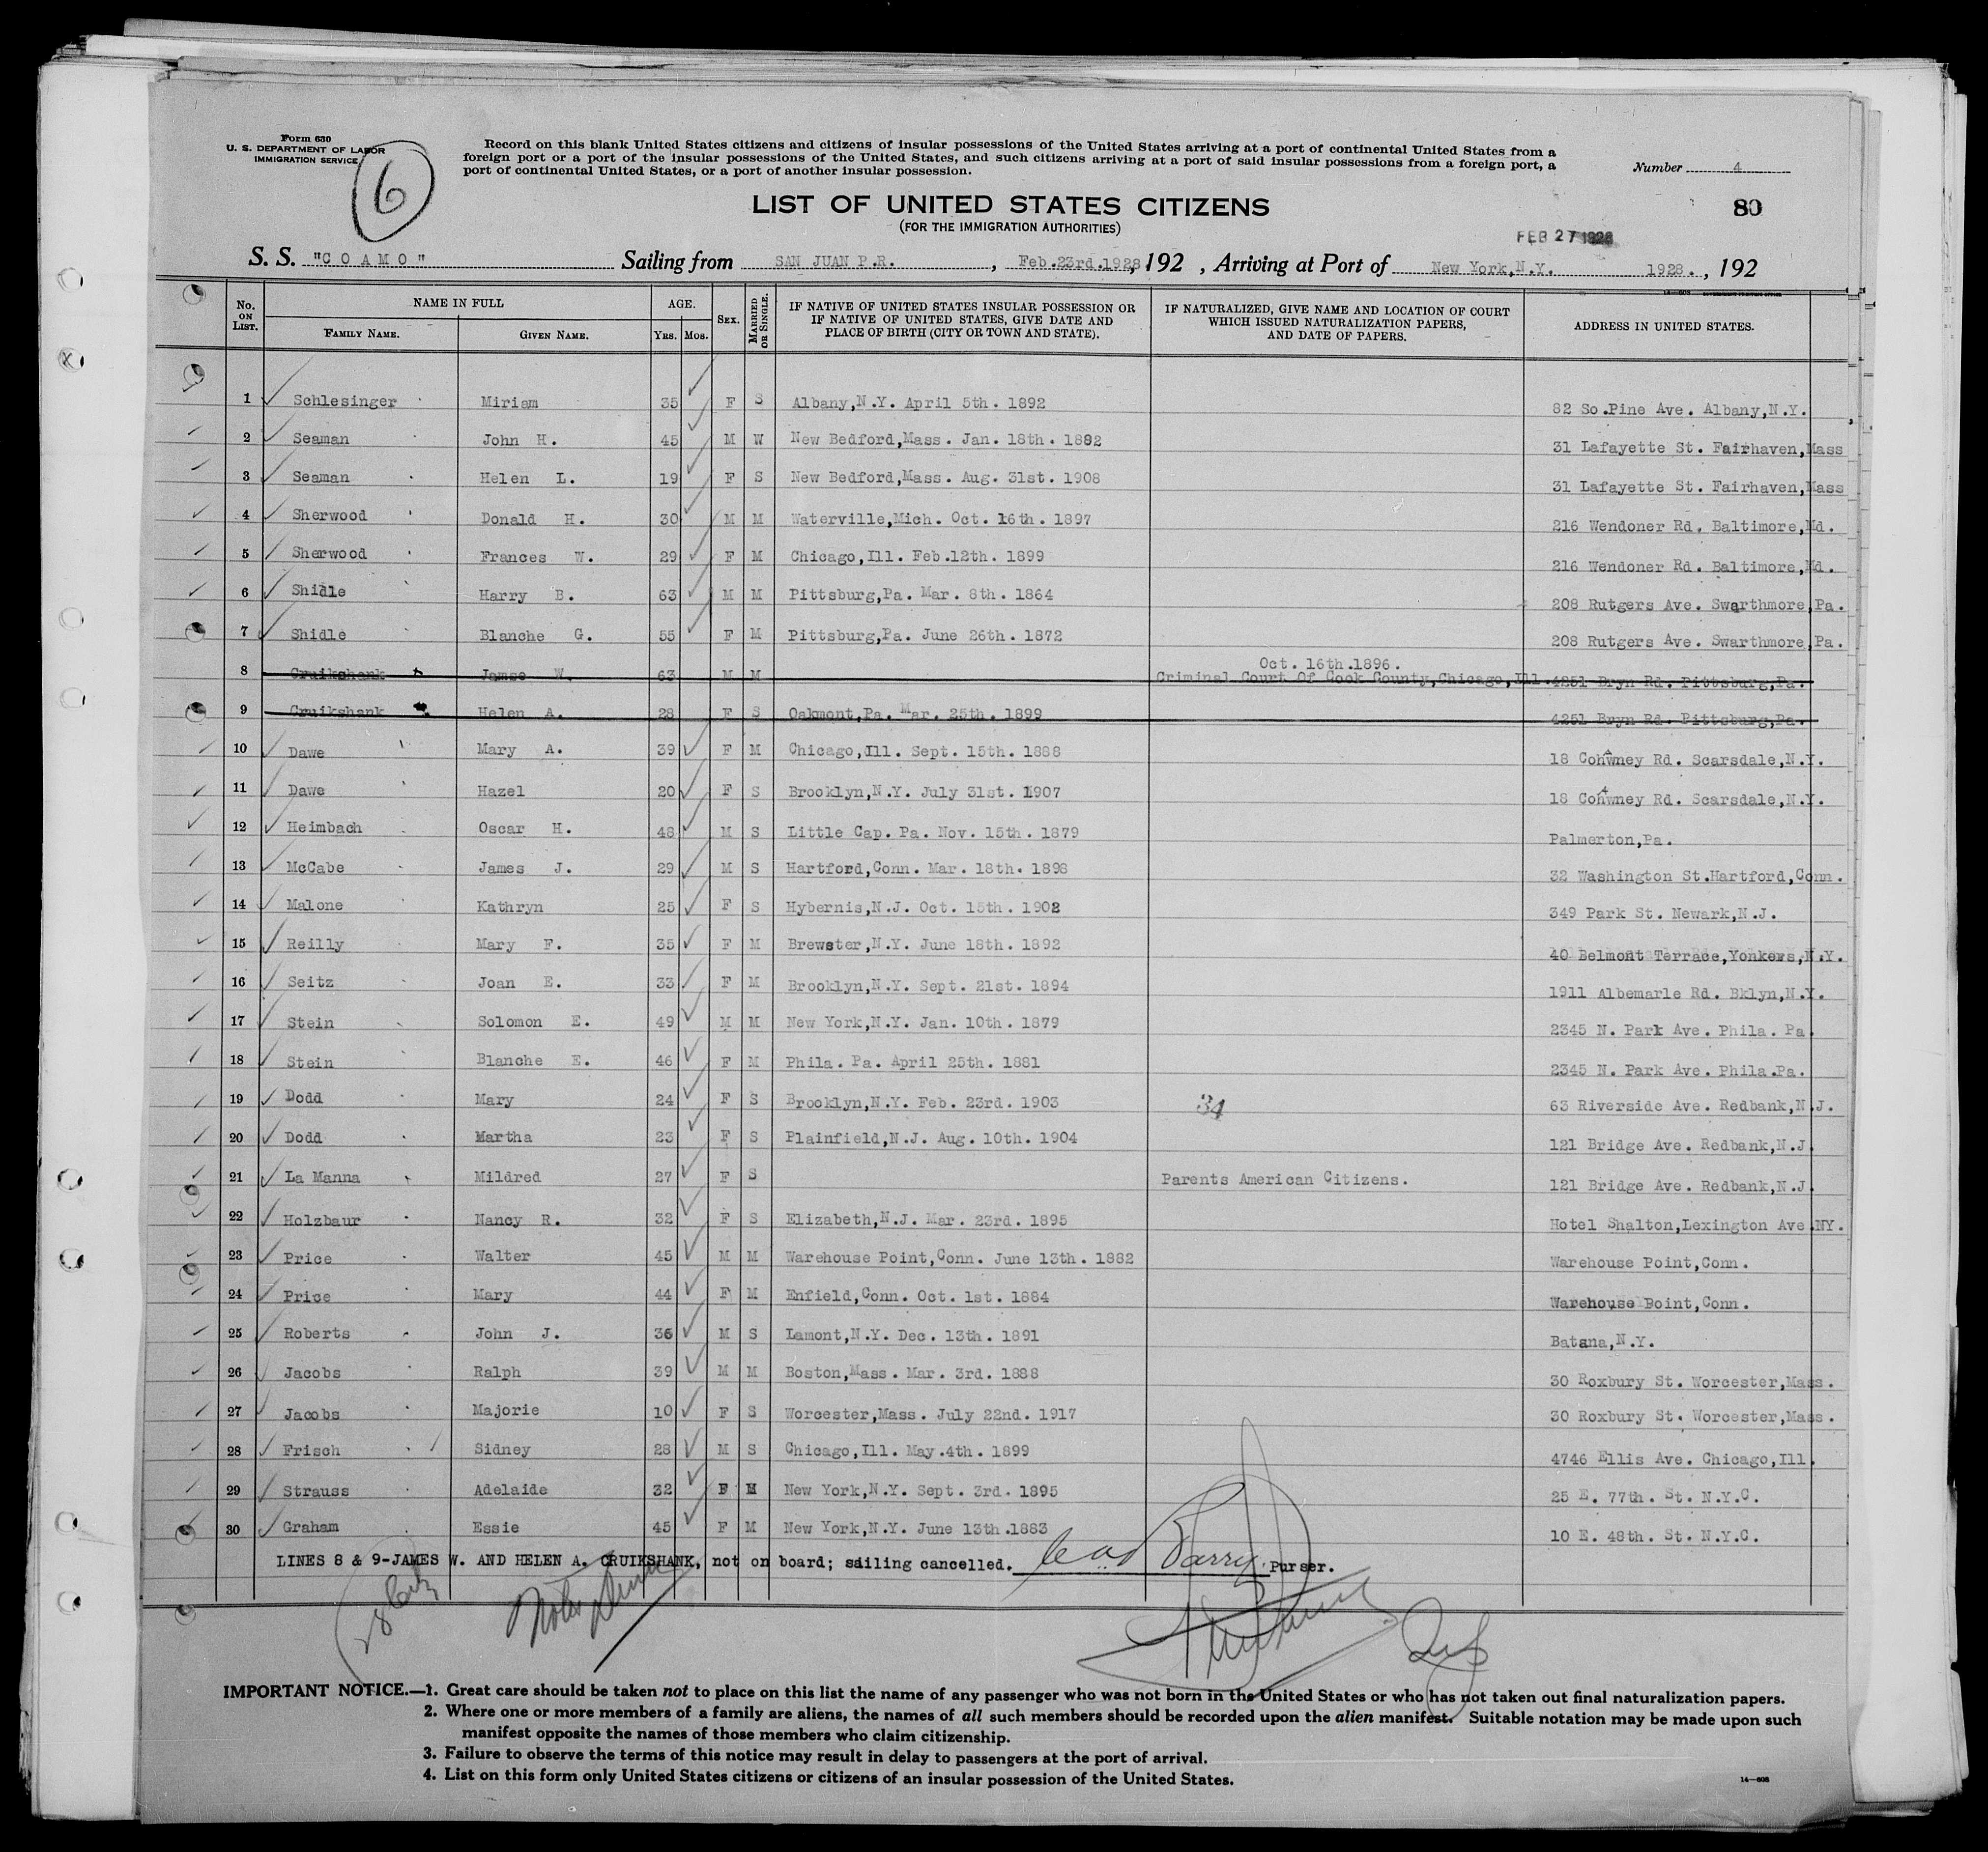 Form 630
U. S. DEPARTMENT OF LABOR
IMMIGRATION SERVICE
6
Record on this blank United States citizens and citizens of insular possessions of the United States arriving at a port of continental United States from a
foreign port or a port of the insular possessions of the United States, and such citizens arriving at a port of said insular possessions from a foreign port, a
port of continental United States, or a port of another insular possession.
Number 4
LIST OF UNITED STATES CITIZENS
80
(FOR THE IMMIGRATION AUTHORITIES)
FEB 27 1928
S. S. "COAMO" Sailing from SAN JUAN P.R. , Feb.23rd.1928, 192 , Arriving at Port of New York,N.Y. 1928. , 192
No. ON LIST. NAME IN FULL FAMILY NAME. GIVEN NAME. AGE. YRS. MOS. SEX. MARRIED OR SINGLE. IF NATIVE OF UNITED STATES INSULAR POSSESSION OR IF NATIVE OF UNITED STATES, GIVE DATE AND PLACE OF BIRTH (CITY OR TOWN AND STATE). IF NATURALIZED, GIVE NAME AND LOCATION OF COURT WHICH ISSUED NATURALIZATION PAPERS, AND DATE OF PAPERS. ADDRESS IN UNITED STATES.
1 Schlesinger Miriam 35 F S Albany,N.Y. April 5th. 1892 82 So.Pine Ave. Albany,N.Y.
2 Seaman John H. 45 M W New Bedford,Mass. Jan. 18th. 1882 31 Lafayette St. Fairhaven,Mass
3 Seaman Helen L. 19 F S New Bedford,Mass. Aug. 31st. 1908 31 Lafayette St. Fairhaven,Mass
4 Sherwood Donald H. 30 M M Waterville,Mich. Oct. 16th. 1897 216 Wendoner Rd. Baltimore,Md.
5 Sherwood Frances W. 29 F M Chicago,Ill. Feb.12th. 1899 216 Wendoner Rd. Baltimore,Md.
6 Shidle Harry B. 63 M M Pittsburg,Pa. Mar. 8th. 1864 208 Rutgers Ave. Swarthmore,Pa.
7 Shidle Blanche G. 55 F M Pittsburg,Pa. June 26th. 1872 208 Rutgers Ave. Swarthmore,Pa.
8 Cruikshank James W. 63 M M Oct. 16th.1896. Criminal Court Of Cook County,Chicago,Ill. 4251 Bryn Rd. Pittsburg,Pa.
9 Cruikshank Helen A. 28 F S Oakmont,Pa. Mar. 25th. 1899 4251 Bryn Rd. Pittsburg,Pa.
10 Dawe Mary A. 39 F M Chicago,Ill. Sept. 15th. 1888 18 Cohwney Rd. Scarsdale,N.Y.
11 Dawe Hazel 20 F S Brooklyn,N.Y. July 31st. 1907 18 Cohwney Rd. Scarsdale,N.Y.
12 Heimbach Oscar H. 48 M S Little Cap. Pa. Nov. 15th. 1879 Palmerton,Pa.
13 McCabe James J. 29 M S Hartford,Conn. Mar. 18th. 1898 32 Washington St.Hartford,Conn.
14 Malone Kathryn 25 F S Hybernis,N.J. Oct. 15th. 1902 349 Park St. Newark,N.J.
15 Reilly Mary F. 35 F M Brewster,N.Y. June 18th. 1892 40 Belmont Terrace,Yonkers,N.Y.
16 Seitz Joan E. 33 F M Brooklyn,N.Y. Sept. 21st. 1894 1911 Albemarle Rd. Bklyn,N.Y.
17 Stein Solomon E. 49 M M New York,N.Y. Jan. 10th. 1879 2345 N. Park Ave. Phila. Pa.
18 Stein Blanche E. 46 F M Phila. Pa. April 25th. 1881 2345 N. Park Ave. Phila.Pa.
19 Dodd Mary 24 F S Brooklyn,N.Y. Feb. 23rd. 1903 34 63 Riverside Ave. Redbank,N.J.
20 Dodd Martha 23 F S Plainfield,N.J. Aug. 10th. 1904 121 Bridge Ave. Redbank,N.J.
21 La Manna Mildred 27 F S Parents American Citizens. 121 Bridge Ave. Redbank,N.J.
22 Holzbaur Nancy R. 32 F S Elizabeth,N.J. Mar. 23rd. 1895 Hotel Shalton,Lexington Ave.NY.
23 Price Walter 45 M M Warehouse Point,Conn. June 13th. 1882 Warehouse Point,Conn.
24 Price Mary 44 F M Enfield,Conn. Oct. 1st. 1884 Warehouse Boint,Conn.
25 Roberts John J. 36 M S Lamont,N.Y. Dec. 13th. 1891 Batana,N.Y.
26 Jacobs Ralph 39 M M Boston,Mass. Mar. 3rd. 1888 30 Roxbury St. Worcester,Mass.
27 Jacobs Majorie 10 F S Worcester,Mass. July 22nd. 1917 30 Roxbury St. Worcester,Mass.
28 Frisch Sidney 28 M S Chicago,Ill. May.4th. 1899 4746 Ellis Ave. Chicago,Ill.
29 Strauss Adelaide 32 F M New York,N.Y. Sept. 3rd. 1895 25 E. 77th. St. N.Y.C.
30 Graham Essie 45 F M New York,N.Y. June 13th.1883 10 E. 48th. St. N.Y.C.
LINES 8 & 9-JAMES W. AND HELEN A. CRUIKSHANK, not on board; sailing cancelled. Purser.
IMPORTANT NOTICE.—1. Great care should be taken not to place on this list the name of any passenger who was not born in the United States or who has not taken out final naturalization papers.
2. Where one or more members of a family are aliens, the names of all such members should be recorded upon the alien manifest. Suitable notation may be made upon such
manifest opposite the names of those members who claim citizenship.
3. Failure to observe the terms of this notice may result in delay to passengers at the port of arrival.
4. List on this form only United States citizens or citizens of an insular possession of the United States.
14—608